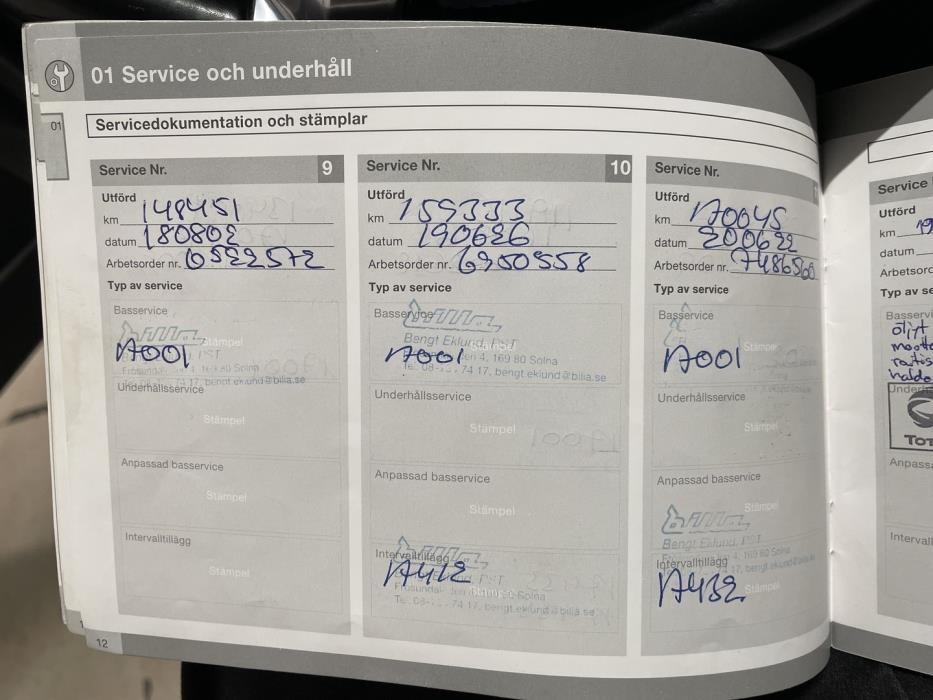 01 Service och underhåll
01
Servicedokumentation och stämplar
Service Nr. 9
Utförd
km 148451
datum 180802
Arbetsorder nr. 6522572
Typ av service
Basservice
Stämpel
17001
bengt.eklund@bilia.se
Underhållsservice
Stämpel
Anpassad basservice
Stämpel
Intervalltillägg
Stämpel
Service Nr. 10
Utförd
km 159333
datum 190626
Arbetsorder nr. 6950558
Typ av service
Basservice
Bengt Eklund, PST
17001 4, 169 80 Solna
74 17, bengt.eklund@bilia.se
Underhållsservice
Stämpel
Anpassad basservice
Stämpel
Intervalltillägg
17412
Solna
74 17, bengt.eklund@bilia.se
Service Nr.
Utförd
km 170045
datum 200622
Arbetsorder nr. 7486560
Typ av service
Basservice
Stämpel
17001
Underhållsservice
Stämpel
Anpassad basservice
Stämpel
Bengt Eklund, PST
4, 169 80 Solna
Intervalltillägg
17432
Stämpel
12
Service
Utförd
km 19
datum
Arbetsor
Typ av se
Basservi
öljyt
Underh
TOT
Anpass
Intervall